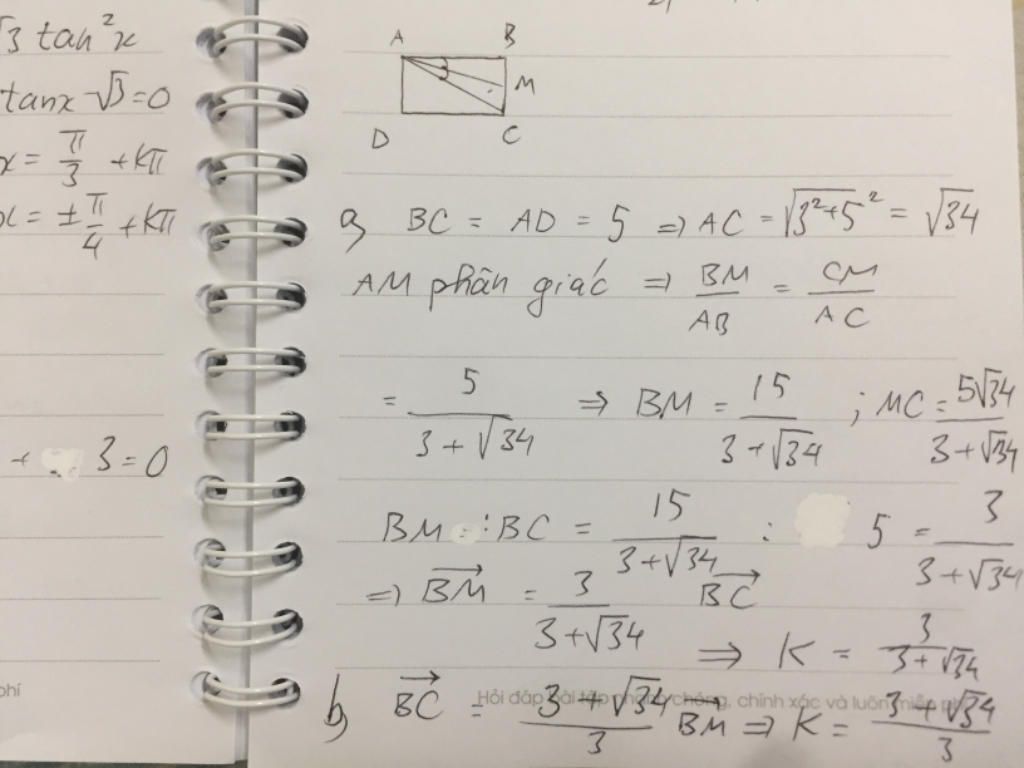 √3 tan²x
tanx - √3 = 0
x = π/3 + kπ
x = ± π/4 + kπ
+ 3 = 0
phí
A B
M
D C
a, BC = AD = 5 => AC = √3²+5² = √34
AM phân giác => BM/AB = CM/AC
= 5/(3+√34) => BM = 15/(3+√34) ; MC = 5√34/(3+√34)
BM : BC = 15/(3+√34) : 5 = 3/(3+√34)
=> BM→ = 3/(3+√34) BC→
=> K = 3/(3+√34)
Hỏi đáp bài tập nhanh chóng, chính xác và luôn miễn phí
b, BC→ = (3+√34)/3 BM→ => K = (3+√34)/3